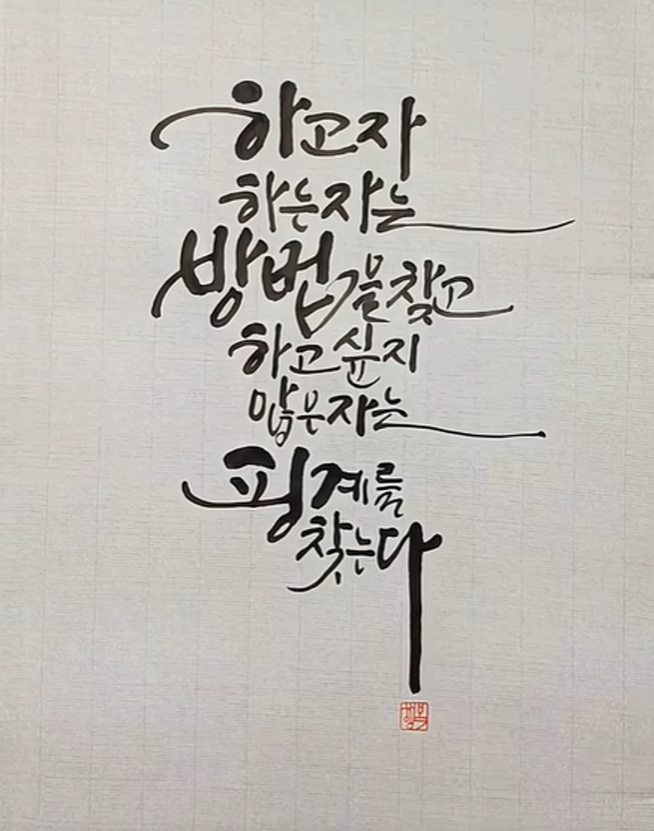 하고자
하는자는
방법을찾고
하고싶지
않은자는
핑계를
찾는다